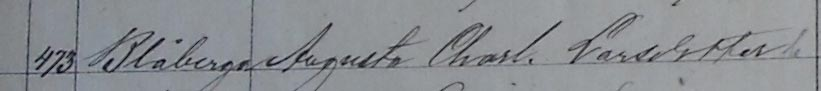 473 Blåberga Augusta Charl. Larsdotter